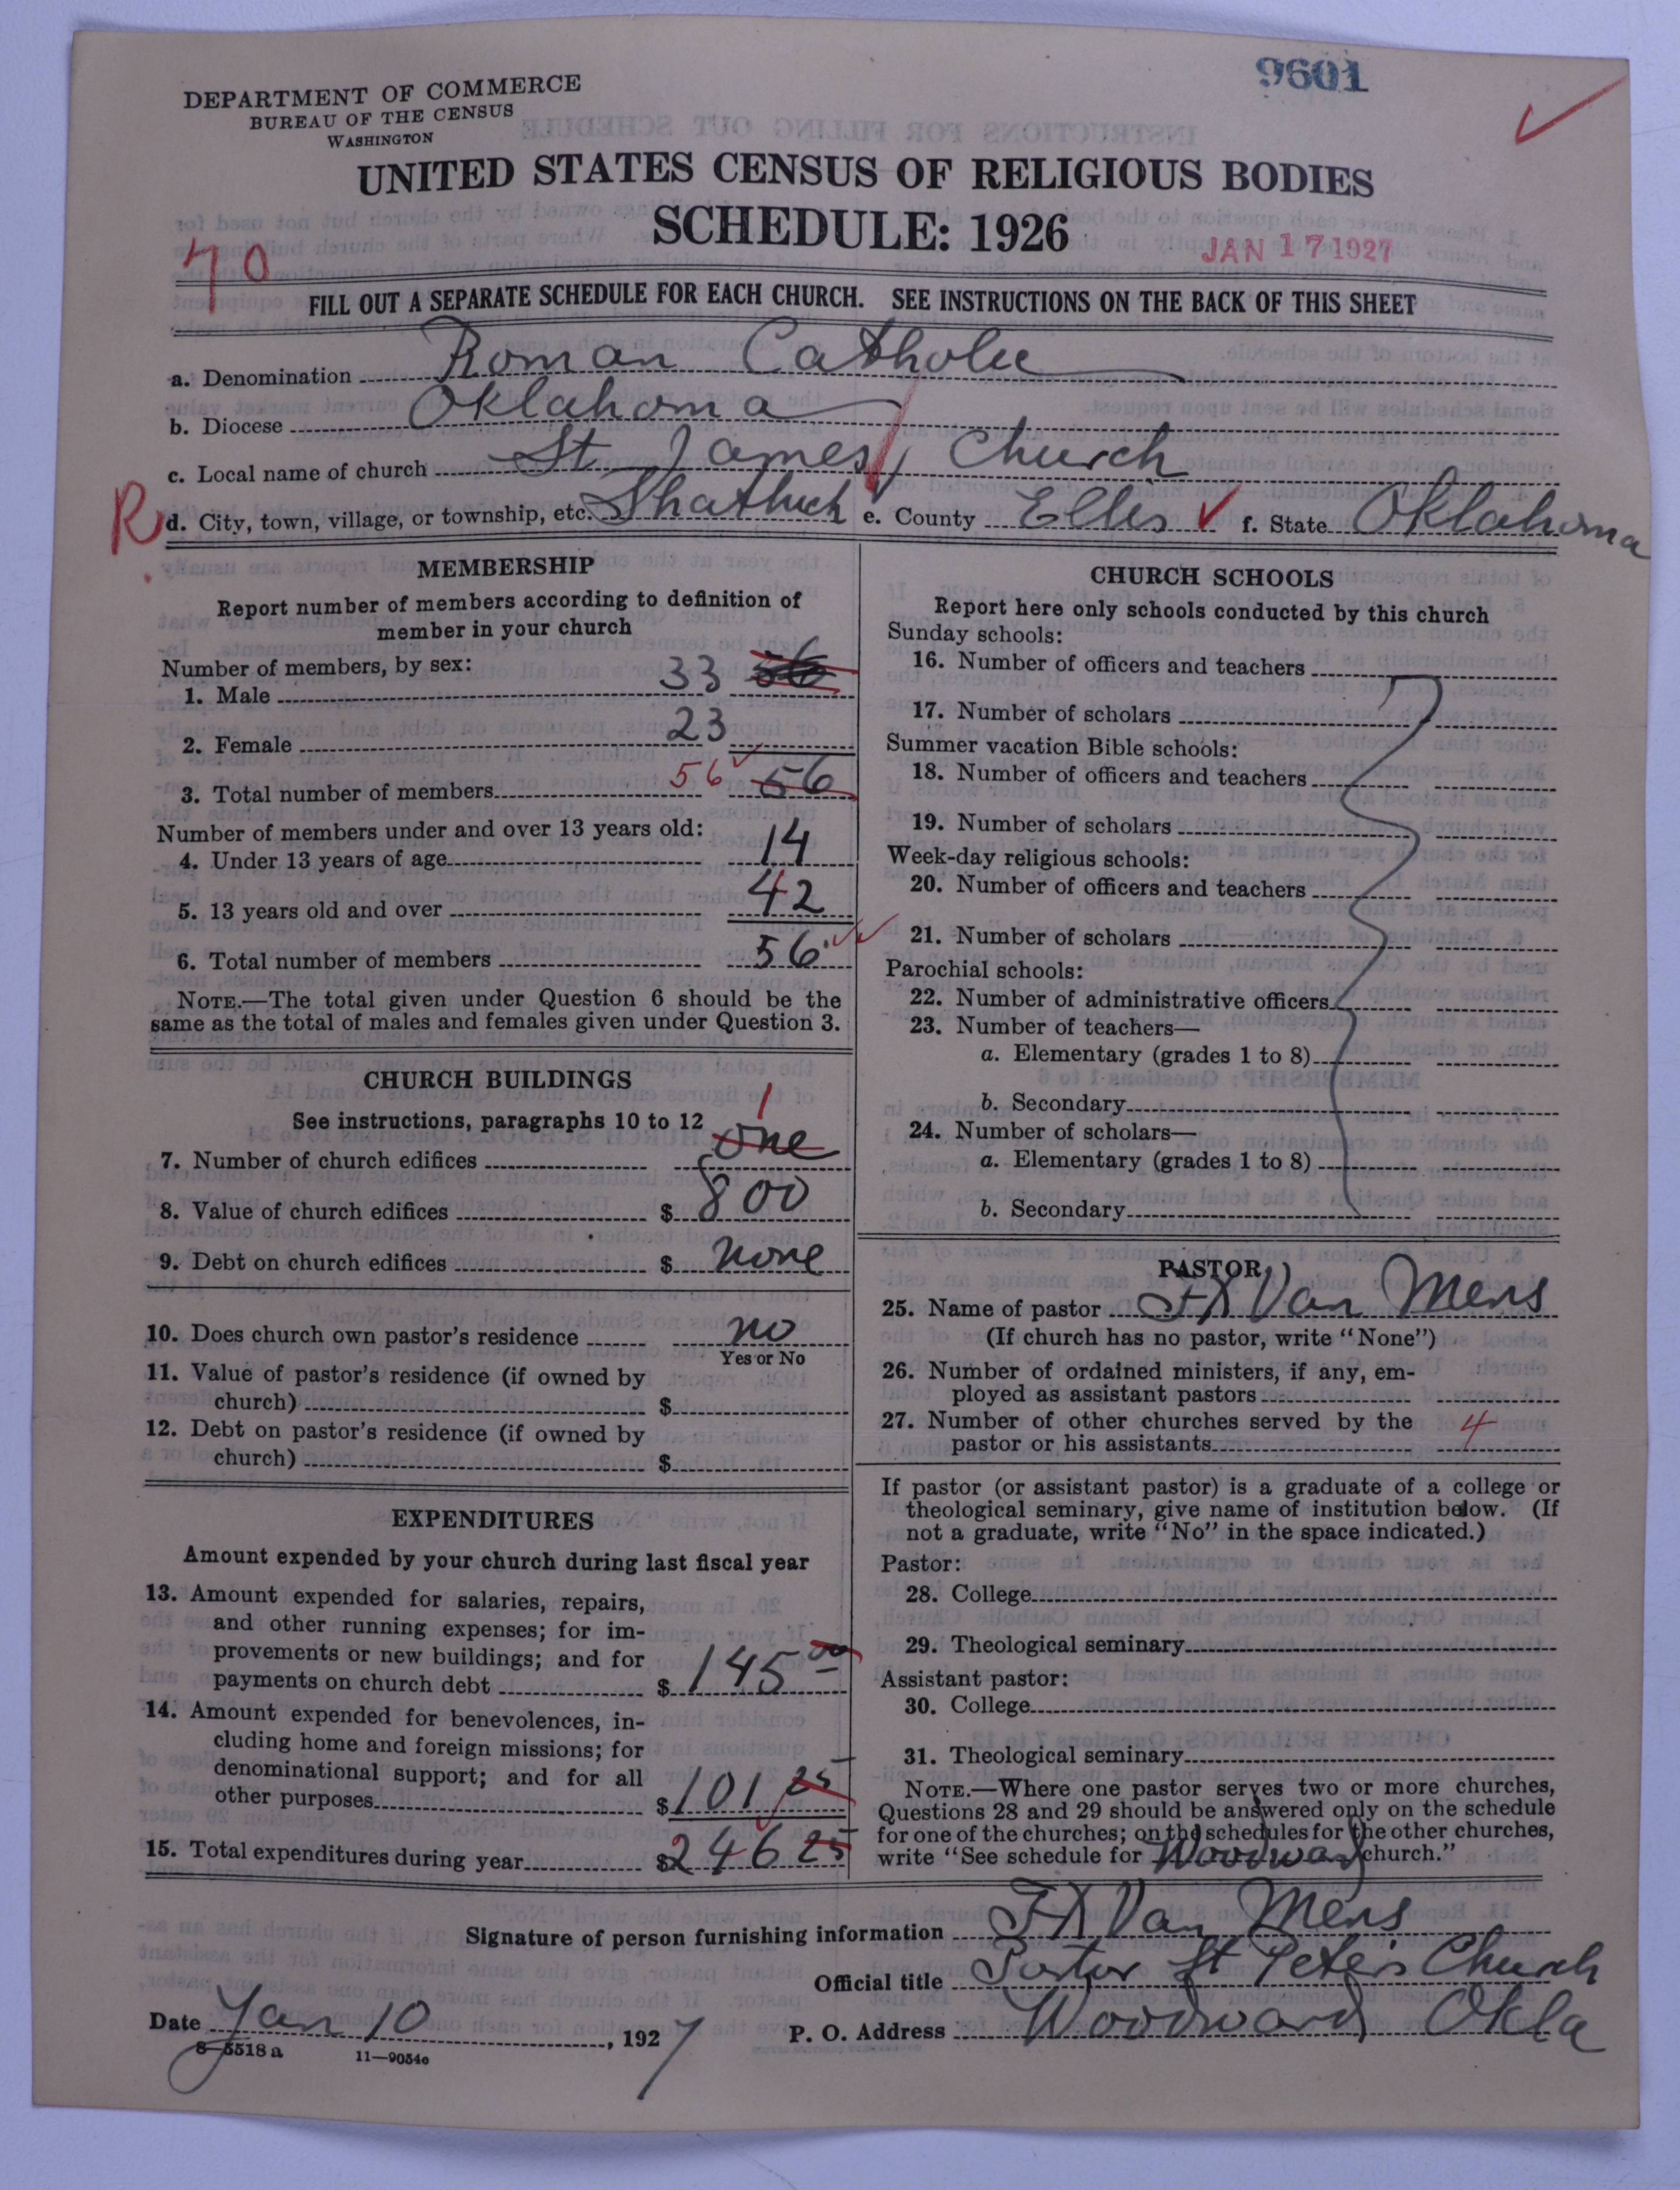 9601
DEPARTMENT OF COMMERCE
BUREAU OF THE CENSUS
WASHINGTON
UNITED STATES CENSUS OF RELIGIOUS BODIES
SCHEDULE: 1926
JAN 17 1927
70
FILL OUT A SEPARATE SCHEDULE FOR EACH CHURCH. SEE INSTRUCTIONS ON THE BACK OF THIS SHEET
a. Denomination Roman Catholic
b. Diocese Oklahoma
c. Local name of church St James Church
R d. City, town, village, or township, etc. Shattuck e. County Ellis f. State Oklahoma
MEMBERSHIP
Report number of members according to definition of
member in your church
Number of members, by sex:
1. Male 33 56
2. Female 23
3. Total number of members 56 56
Number of members under and over 13 years old:
4. Under 13 years of age 14
5. 13 years old and over 42
6. Total number of members 56
NOTE.—The total given under Question 6 should be the
same as the total of males and females given under Question 3.
CHURCH BUILDINGS
See instructions, paragraphs 10 to 12
1
7. Number of church edifices One
8. Value of church edifices $ 800
9. Debt on church edifices $ none
10. Does church own pastor's residence no
Yes or No
11. Value of pastor's residence (if owned by
church) $
12. Debt on pastor's residence (if owned by
church) $
EXPENDITURES
Amount expended by your church during last fiscal year
13. Amount expended for salaries, repairs,
and other running expenses; for im-
provements or new buildings; and for
payments on church debt $ 145 00
14. Amount expended for benevolences, in-
cluding home and foreign missions; for
denominational support; and for all
other purposes $ 101 25
15. Total expenditures during year $ 246 25
CHURCH SCHOOLS
Report here only schools conducted by this church
Sunday schools:
16. Number of officers and teachers
17. Number of scholars
Summer vacation Bible schools:
18. Number of officers and teachers
19. Number of scholars
Week-day religious schools:
20. Number of officers and teachers
21. Number of scholars
Parochial schools:
22. Number of administrative officers
23. Number of teachers—
a. Elementary (grades 1 to 8)
b. Secondary
24. Number of scholars—
a. Elementary (grades 1 to 8)
b. Secondary
PASTOR
25. Name of pastor FX Van Mens
(If church has no pastor, write "None")
26. Number of ordained ministers, if any, em-
ployed as assistant pastors
27. Number of other churches served by the
pastor or his assistants 4
If pastor (or assistant pastor) is a graduate of a college or
theological seminary, give name of institution below. (If
not a graduate, write "No" in the space indicated.)
Pastor:
28. College
29. Theological seminary
Assistant pastor:
30. College
31. Theological seminary
NOTE.—Where one pastor serves two or more churches,
Questions 28 and 29 should be answered only on the schedule
for one of the churches; on the schedules for the other churches,
write "See schedule for Woodward church."
Signature of person furnishing information FX Van Mens
Official title Pastor St Peter's Church
Date Jan 10, 1927 P. O. Address Woodward Okla
8-5518 a 11—9054c